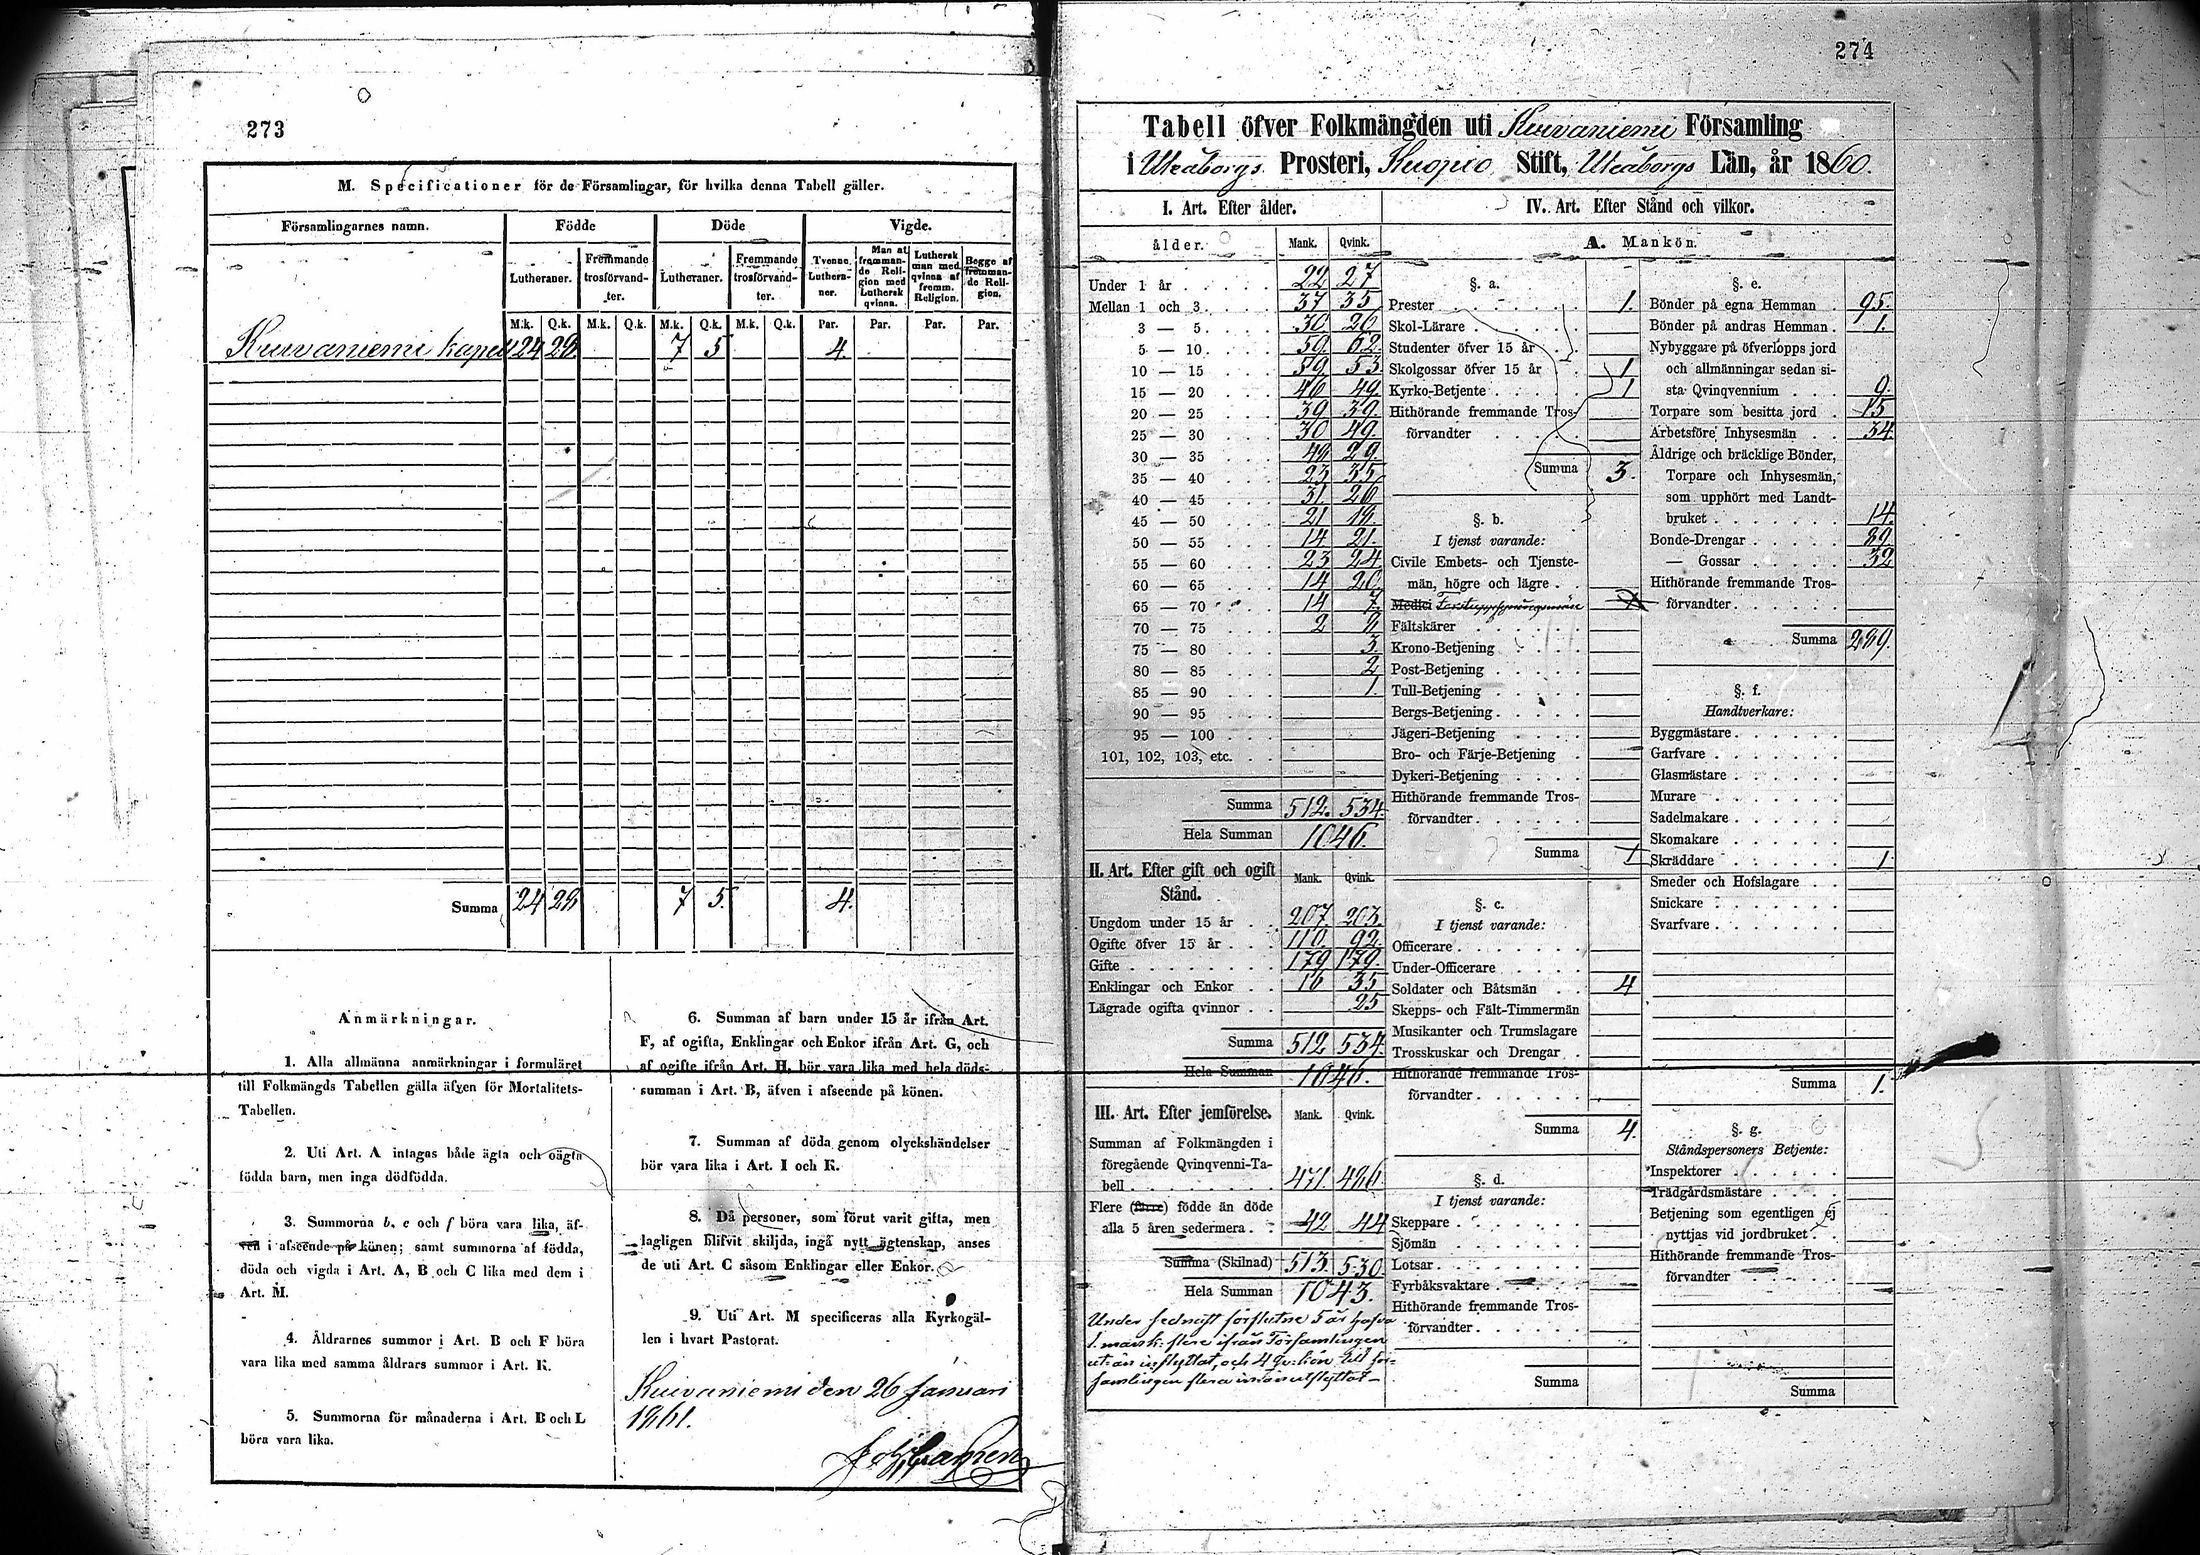 273
M. Specificationer för de Församlingar, för hvilka denna Tabell gäller.
Församlingarnes namn. Födde Döde Vigde.
Lutheraner. Fremmande trosförvandter. Lutheraner. Fremmande trosförvandter. Tvenne Lutheraner. Man af fremmande Religion med Luthersk qvinna. Luthersk man med qvinna af fremm. Religion. Begge af fremmande Religion.
M.k. Q.k. M.k. Q.k. M.k. Q.k. M.k. Q.k. Par. Par. Par. Par.
Kuivaniemi kapell 24 28 7 5 4.
Summa 24 28 7 5. 4.
Anmärkningar.
1. Alla allmänna anmärkningar i formuläret
till Folkmängds Tabellen gälla äfven för Mortalitets-
Tabellen.
2. Uti Art. A intagas både ägta och oägta
födda barn, men inga dödfödda.
3. Summorna b, e och f böra vara lika, äf-
ven i afseende på könen; samt summorna af födda,
döda och vigda i Art. A, B och C lika med dem i
Art. M.
4. Åldrarnes summor i Art. B och F böra
vara lika med samma åldrars summor i Art. K.
5. Summorna för månaderna i Art. B och L
böra vara lika.
6. Summan af barn under 15 år ifrån Art.
F, af ogifta, Enklingar och Enkor ifrån Art. G, och
af ogifte ifrån Art. H, bör vara lika med hela döds-
summan i Art. B, äfven i afseende på könen.
7. Summan af döda genom olyckshändelser
bör vara lika i Art. I och K.
8. Då personer, som förut varit gifta, men
lagligen blifvit skiljda, ingå nytt ägtenskap, anses
de uti Art. C såsom Enklingar eller Enkor.
9. Uti Art. M specificeras alla Kyrkogäl-
len i hvart Pastorat.
Kuivaniemi den 26 Januari
1861.
274
Tabell öfver Folkmängden uti Kuivaniemi Församling
i Uleåborgs Prosteri, Kuopio Stift, Uleåborgs Län, år 1860.
I. Art. Efter ålder.
ålder. Mank. Qvink.
Under 1 år 22 27
Mellan 1 och 3 37 35
3 — 5 30 20
5 — 10 59. 62.
10 — 15 59 53
15 — 20 46 49.
20 — 25 39 39.
25 — 30 30 49.
30 — 35 48 29.
35 — 40 23 35
40 — 45 31. 26
45 — 50 21 18.
50 — 55 14 21.
55 — 60 23 24
60 — 65 14 20
65 — 70 14 7
70 — 75 2
75 — 80 3
80 — 85 2
85 — 90 1.
90 — 95
95 — 100
101, 102, 103, etc.
Summa 512. 534
Hela Summan 1046.
II. Art. Efter gift och ogift
Stånd. Mank. Qvink.
Ungdom under 15 år 207. 203.
Ogifte öfver 15 år 110. 92.
Gifte 179 179.
Enklingar och Enkor 16 35
Lägrade ogifta qvinnor 25
Summa 512 534.
Hela Summan 1046.
III. Art. Efter jemförelse. Mank. Qvink.
Summan af Folkmängden i
föregående Qvinqvenni-Ta-
bell 471. 486
Flere (färre) födde än döde
alla 5 åren sedermera 42 44
Summa (Skilnad) 513. 530.
Hela Summan 1043.
Under sednast förflutne 5 år hafva
1. mansk: flere ifrån Församlingen
ut än inflyttat, och 4 Qv: kön till för-
samlingen flera in än utflyttat—
IV. Art. Efter Stånd och vilkor.
A. Mankön.
§. a.
Prester 1.
Skol-Lärare
Studenter öfver 15 år
Skolgossar öfver 15 år 1
Kyrko-Betjente 1
Hithörande fremmande Tros-
förvandter
Summa 3.
§. b.
I tjenst varande:
Civile Embets- och Tjenste-
män, högre och lägre
Medici
Fältskärer
Krono-Betjening
Post-Betjening
Tull-Betjening
Bergs-Betjening
Jägeri-Betjening
Bro- och Färje-Betjening
Dykeri-Betjening
Hithörande fremmande Tros-
förvandter
Summa 1
§. c.
I tjenst varande:
Officerare
Under-Officerare
Soldater och Båtsmän 4
Skepps- och Fält-Timmermän
Musikanter och Trumslagare
Trosskuskar och Drengar
Hithörande fremmande Tros-
förvandter
Summa 4.
§. d.
I tjenst varande:
Skeppare
Sjömän
Lotsar
Fyrbåksvaktare
Hithörande fremmande Tros-
förvandter
Summa
§. e.
Bönder på egna Hemman 95.
Bönder på andras Hemman 1.
Nybyggare på öfverlopps jord
och allmänningar sedan si-
sta Qvinqvennium 9.
Torpare som besitta jord 15
Arbetsföre Inhysesmän 34.
Åldrige och bräcklige Bönder,
Torpare och Inhysesmän,
som upphört med Landt-
bruket 14.
Bonde-Drengar 89.
— Gossar 32
Hithörande fremmande Tros-
förvandter
Summa 289.
§. f.
Handtverkare:
Byggmästare
Garfvare
Glasmästare
Murare
Sadelmakare
Skomakare
Skräddare 1
Smeder och Hofslagare
Snickare
Svarfvare
Summa 1.
§. g.
Ståndspersoners Betjente:
Inspektorer
Trädgårdsmästare
Betjening som egentligen ej
nyttjas vid jordbruket
Hithörande fremmande Tros-
förvandter
Summa